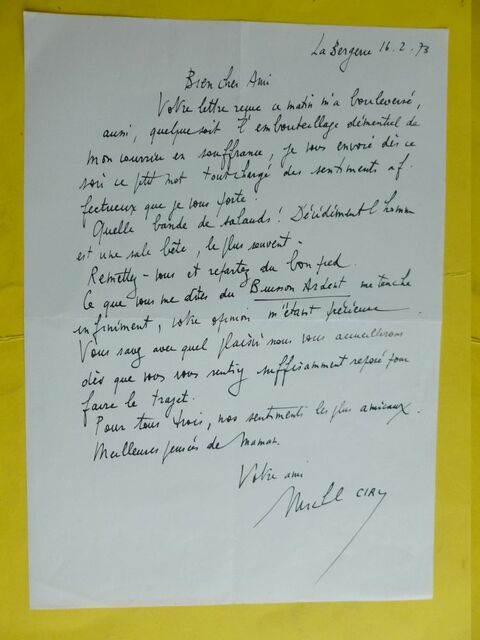 La Bergerie 16.2.73
Bien cher Ami
Votre lettre reçue ce matin m'a bouleversé,
aussi, quelque soit l'embouteillage démentiel de
mon courrier en souffrance, je vous envoie dès ce
soir ce ptit mot tout chargé des sentiments af-
fectueux que je vous porte.
Quelle bande de salauds ! Décidément l'homme
est une sale bête, le plus souvent -
Remettez-vous et repartez du bon pied.
Ce que vous me dites du Buisson Ardent me touche
infiniment, votre opinion m'étant précieuse.
Vous savez avec quel plaisir nous vous accueillerons
dès que vous vous sentirez suffisamment reposé pour
faire le trajet.
Pour tous trois, nos sentiments les plus amicaux.
Meilleures pensées de Maman.
Votre ami
Michel CIRY